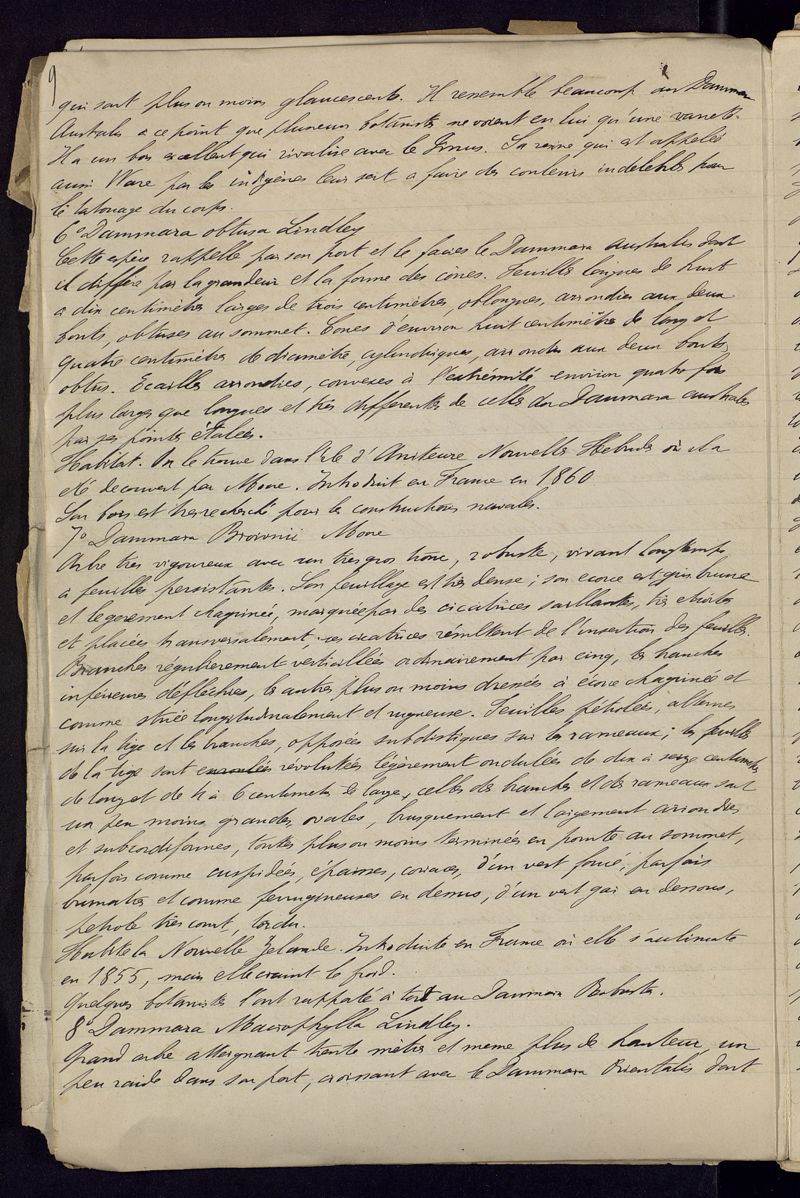 9
qui sont plus ou moins glaucescente. Il ressemble beaucoup au Dammara
Australis a ce point que plusieurs botanistes ne voient en lui qu'une variete.
Il a un bois excellent qui rivalise avec le Pinus. Sa resine qui est appelée
aussi Ware par les indigènes leur sert a faire des couleurs indelebiles pour
le tatouage du corps.
6° Dammara obtusa Lindley
Cette espèce rappelle par son port et le facies le Dammara australis dont
il differe par la grandeur et la forme des cônes. Feuilles longues de huit
a dix centimètres larges de trois centimètres, oblongues, arrondies aux deux
bouts, obtuses au sommet. Cones d'environ huit centimètres de long et
quatre centimètres de diamètre, cylindriques, arrondis aux deux bouts
obtus. Ecailles arrondies, convexes à l'extrémité environ quatre fois
plus larges que longues et très differentes de celles du Dammara australis
par ses pointes étalées.
Habitat. On le trouve dans l'île d'Aniteure Nouvelles Hebrides où il a
été decouvert par Moore. Introduit en France en 1860
Son bois est tres recherché pour les constructions navales.
7° Dammara Brownii Moore
Arbre tres vigoureux avec un tres gros tronc, robuste, vivant longtemps,
à feuilles persistantes. Son feuillage est très dense; son ecorce est gris brune
et legerement chagrinée, marquée par des cicatrices saillantes, très etroites
et placées transversalement, ces cicatrices résultent de l'insertion des feuilles.
Branches regulierement verticillées ordinairement par cinq, les branches
inférieures défléchies, les autres plus ou moins dressées à écorce chagrinée et
comme striée longitudinalement et rugueuse. Feuilles pétiolées, alternes
sur la tige et les branches, opposées subdistiques sur les rameaux; les feuilles
de la tige sont révolutées légèrement ondulées de dix à seize centimetres
de long et de 4 à 6 centimetres de large, celles des branches et des rameaux sont
un peu moins grandes, ovales, brusquement et largement arrondies
et subcordiformes, toutes plus ou moins terminées en pointe au sommet,
parfois comme cuspidées, épaisses, coriaces, d'un vert foncé, parfois
brunatres et comme ferrugineuses en dessus, d'un vert gai en dessous,
petiole très court, tordu.
Habite la Nouvelle Zelande. Introduite en France où elle s'acclimate
en 1855, mais elle craint le froid.
Quelques botanistes l'ont rappaté à tort au Dammara Robusta.
8° Dammara Macrophylla Lindley.
Grand arbre atteignant trente mètres et meme plus de hauteur, un
peu raide dans son port, croissant avec le Dammara Orientalis dont